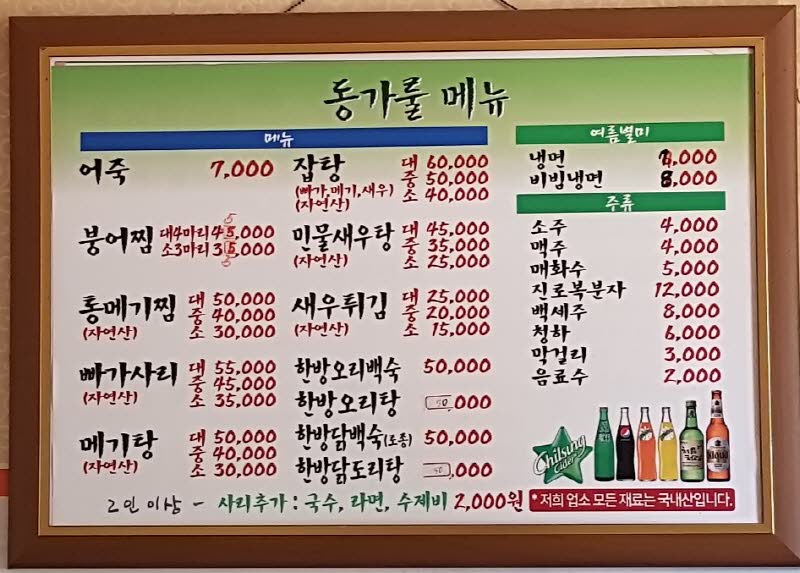 동가룰 메뉴
메뉴
어죽 7,000
붕어찜 대4마리 45,000
소3마리 35,000
통메기찜 대 50,000
(자연산) 중 40,000
소 30,000
빠가사리 대 55,000
(자연산) 중 45,000
소 35,000
메기탕 대 50,000
(자연산) 중 40,000
소 30,000
잡탕 대 60,000
중 50,000
(빠가,메기,새우)
(자연산) 소 40,000
민물새우탕 대 45,000
중 35,000
(자연산) 소 25,000
새우튀김 대 25,000
중 20,000
(자연산) 소 15,000
한방오리백숙 50,000
한방오리탕 50,000
한방닭백숙(토종) 50,000
한방닭도리탕 50,000
2인 이상 - 사리추가 : 국수, 라면, 수제비 2,000원
여름별미
냉면 ,000
비빔냉면 8,000
주류
소주 4,000
맥주 4,000
매화수 5,000
진로복분자 12,000
백세주 8,000
청하 6,000
막걸리 3,000
음료수 2,000
Chilsung
Cider
* 저희 업소 모든 재료는 국내산입니다.